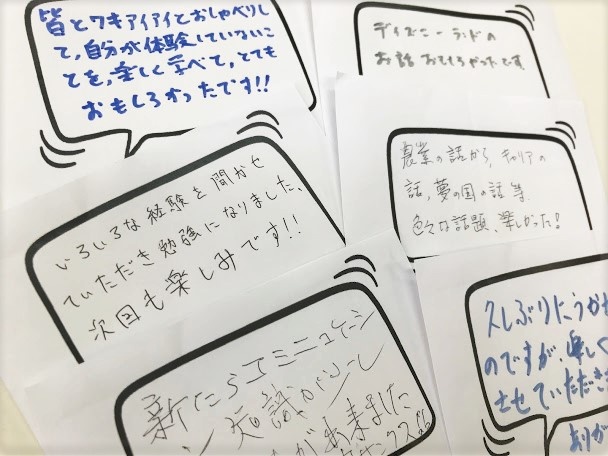 皆とワキアイアイとおしゃべりし
て、自分が体験していないこ
とを、楽しく学べて、とても
おもしろかったです!!
ディズニーランドの
お話 おもしろかったです。
いろいろな経験を聞かせ
ていただき勉強になりました。
次回も楽しみです!!
農業の話から、キャリアの
話、夢の国の話等、
色々な話題、楽しかった!
新たらコミニュケーシ
ン 知識が
が出来ました
久しぶりにうかが
のですが 楽しく
させていただき
ありが